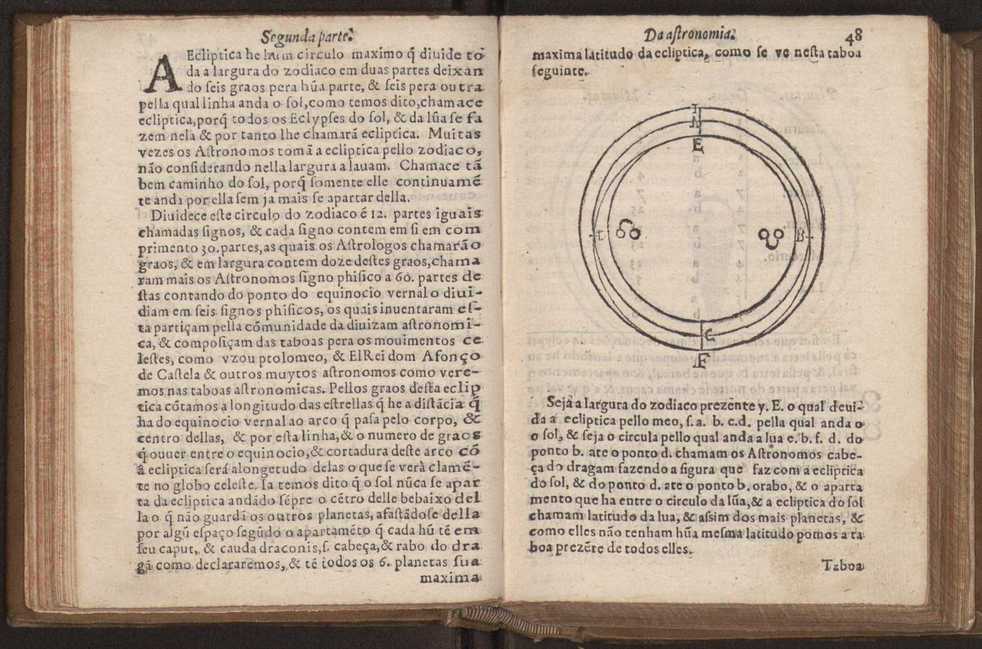 Segunda parte.
A Ecliptica he hum circulo maximo q̃ diuide to
da a largura do zodiaco em duas partes deixan
do seis graos pera hũa parte, & seis pera outra
pella qual linha anda o sol, como temos dito, chamace
ecliptica, porq̃ todos os Eclypses do sol, & da lũa se fa
zem nela & por tanto lhe chamarã ecliptica. Muitas
vezes os Astronomos tomã a ecliptica pello zodiaco,
não considerando nella largura algum. Chamace tã
bem caminho do sol, porq̃ somente elle continuamẽ
te anda por ella sem ja mais se apartar della.
Diuidece este circulo do zodiaco ẽ 12. partes iguais
chamadas signos, & cada signo contem em si em com
primento 30. partes, as quais os Astrologos chamarã o
graos, & em largura contem doze destes graos, chama
ram mais os Astronomos signo phisico a 60. partes de
stas contando do ponto do equinocio vernal o diui-
diam em seis signos phisicos, os quais inuentaram es-
ta partiçam pella cõmunidade da diuizam astronomi-
ca, & composiçam das taboas pera os mouimentos ce
lestes, como vzou ptolomeo, & ElRei dom Afonço
de Castela & outros muytos astronomos como vere-
mos nas taboas astronomicas. Pellos graos desta eclip
tica cõtamos a longitudo das estrellas q̃ he a distãcia q̃
ha do equinocio vernal ao arco q̃ pasa pelo corpo, &
centro dellas, & por esta linha, & o numero de graos
q̃ ouuer entre o equinocio, & cortadura deste arco cõ
ã ecliptica será a longetudo delas o que se verà clamẽ-
te no globo celeste. Ia temos dito q̃ o sol nũca se apar
ta da ecliptica andãdo sẽpre o cẽtro delle bebaixo del
la o q̃ não guardã os outros planetas, afastãdose della
por algũ espaço segũdo o apartamẽto q̃ cada hũ tẽ em
seu caput, & cauda draconis, s. cabeça, & rabo do dra
gã como declararemos, & tẽ todos os 6. planetas sua
maxima
Da astronomia. 48
maxima latitudo da ecliptica, como se ve nesta taboa
seguinte.
E
B
C
F
Seja a largura do zodiaco prezente y. E. o qual deui-
da a ecliptica pello meo, s. a. b. c. d. pella qual anda o
o sol, & seja o circula pello qual anda a lua e. b. f. d. do
ponto b. ate o ponto d. chamam os Astronomos cabe-
ça do dragam fazendo a figura que faz com a ecliptica
do sol, & do ponto d. ate o ponto b. orabo, & o aparta
mento que ha entre o circulo da lũa, & a ecliptica do sol
chamam latitudo da lua, & assim dos mais planetas, &
como elles não tenham hũa mesma latitudo pomos a ta
boa prezẽte de todos elles.
Taboa